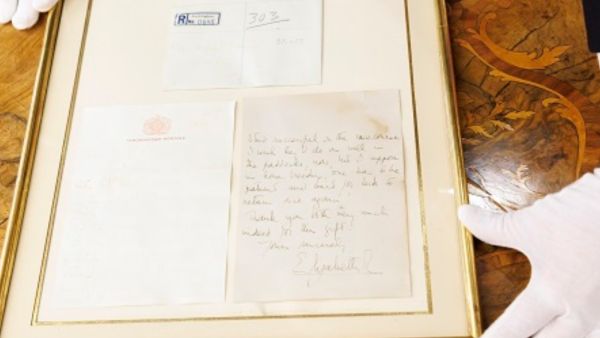 R
303
SANDRINGHAM, NORFOLK
successful in the racecourse
I wish he'd do as well in
the paddocks, now, but I suppose
in horse breeding one has to be
patient and wait for luck to
return again.
Thank you both very much
indeed for this gift.
Yours sincerely
Elizabeth R